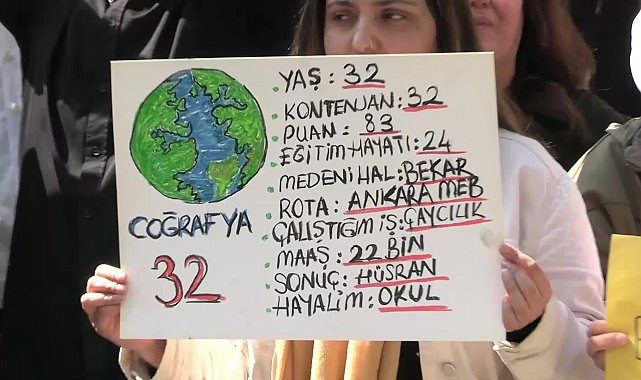 COĞRAFYA
32
YAŞ : 32
KONTENJAN : 32
PUAN : 83
EĞİTİM HAYATI : 24
MEDENİ HAL : BEKAR
ROTA : ANKARA MEB
ÇALIŞTIĞIM İŞ : ÇAYCILIK
MAAŞ : 22 BİN
SONUÇ : HÜSRAN
HAYALİM : OKUL